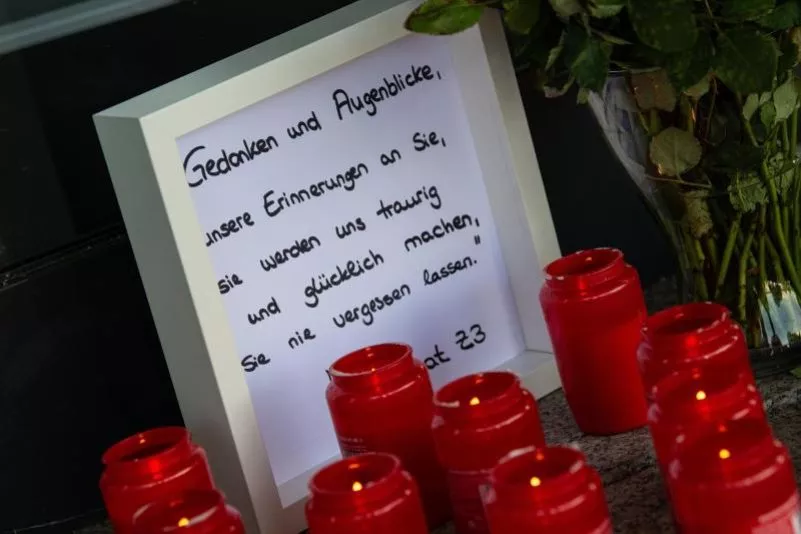 Gedanken und Augenblicke,
unsere Erinnerungen an Sie,
sie werden uns traurig
und glücklich machen,
Sie nie vergessen lassen."
at Z3